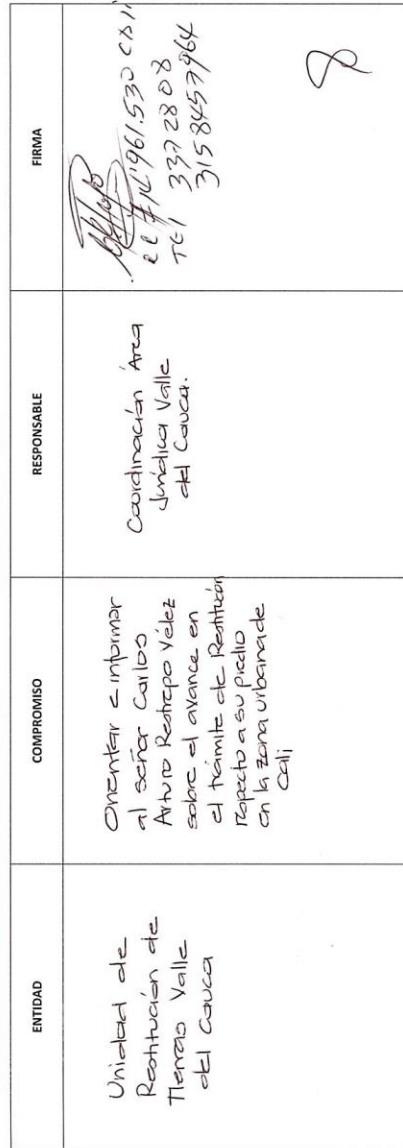 ENTIDAD
COMPROMISO
RESPONSABLE
FIRMA
Unidad de
Restitución de
Tierras Valle
del Cauca
Orientar e informar
al señor Carlos
Arturo Restrepo Vélez
sobre el avance en
el trámite de Restitución
respecto a su predio
en la zona urbana de
Cali
Coordinación Área
Jurídica Valle
del Cauca.
14'961.530 CALI
Tel 3372808
3158457964